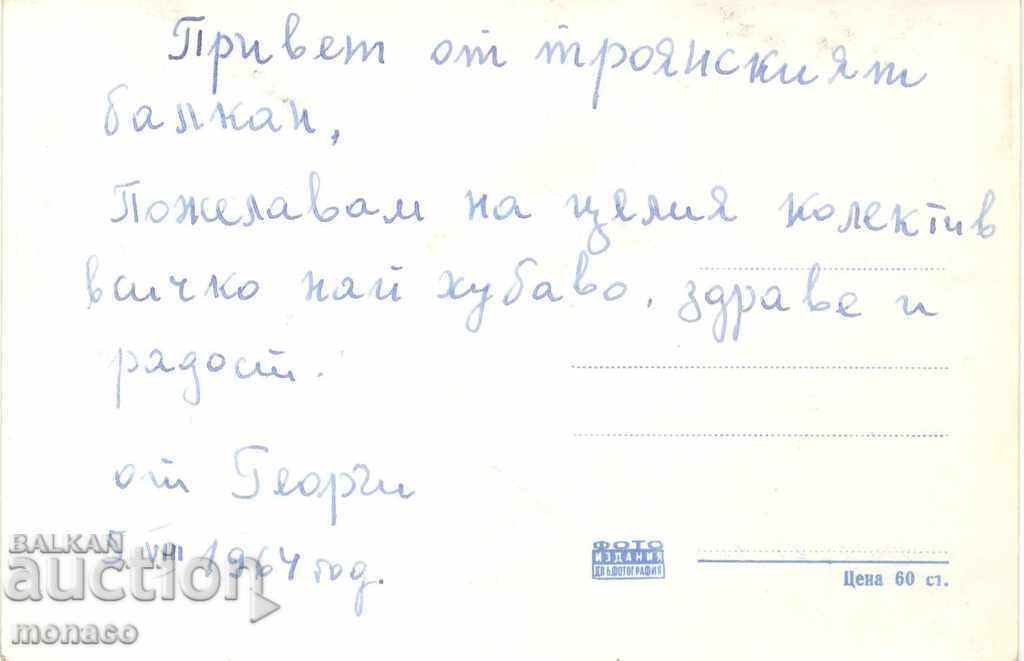 Привет от троянският
балкан,
Пожелавам на целия колектив
всичко най хубаво, здраве и
радост.
от Георги
VIII 1964 год.
ФОТО
ИЗДАНИЯ
ДП Б. ФОТОГРАФИЯ
Цена 60 ст.
BALKAN
auction
monaco